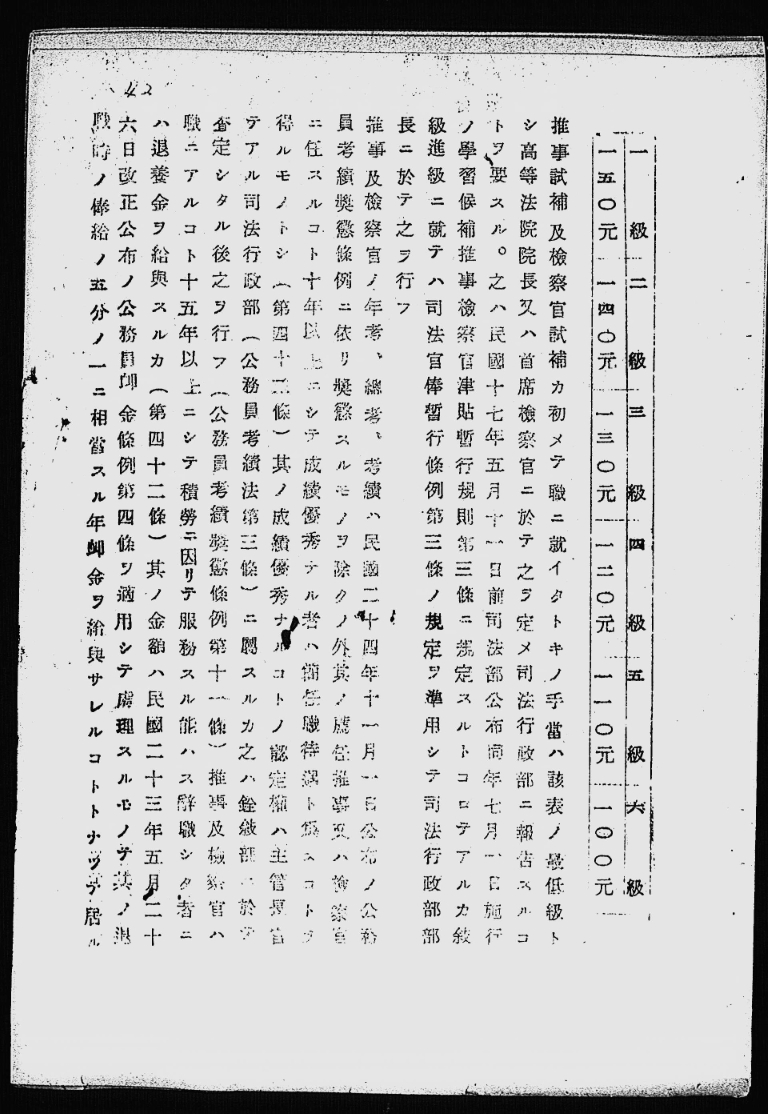 42
一級 二級 三級 四級 五級 六級
一五〇元 一四〇元 一三〇元 一二〇元 一一〇元 一〇〇元
推事試補及檢察官試補カ初メテ職ニ就イタトキノ手當ハ該表ノ最低級ト
シ高等法院院長又ハ首席檢察官ニ於テ之ヲ定メ司法行政部ニ報告スルコ
トヲ要スル。之ハ民國十七年五月十一日前司法部公布同年七月一日施行
ノ學習候補推事檢察官津貼暫行規則第三條ニ規定スルトコロテアルカ敍
級進級ニ就テハ司法官俸暫行條例第三條ノ規定ヲ準用シテ司法行政部部
長ニ於テ之ヲ行フ
推事及檢察官ノ年考、總考、考績ハ民國二十四年十一月一日公布ノ公務
員考績奬懲條例ニ依リ奬懲スルモノヲ除クノ外其ノ薦任推事又ハ檢察官
ニ任スルコト十年以上ニシテ成績優秀ナル者ハ簡任職待遇ト爲スコトヲ
得ルモノトシ(第四十三條)其ノ成績優秀ナルコトノ認定權ハ主管長官
テアル司法行政部(公務員考績法第三條)ニ屬スルカ之ハ銓敍部ニ於テ
審定シタル後之ヲ行フ(公務員考績奬懲條例第十一條)推事及檢察官ハ
職ニアルコト十五年以上ニシテ積勞ニ因リテ服務スル能ハス辭職シタ者ニ
ハ退養金ヲ給與スルカ(第四十二條)其ノ金額ハ民國二十三年五月二十
六日改正公布ノ公務員卹金條例第四條ヲ適用シテ處理スルモノテ其ノ退
職時ノ俸給ノ五分ノ一ニ相當スル年卹金ヲ給與サレルコトトナツテ居ル